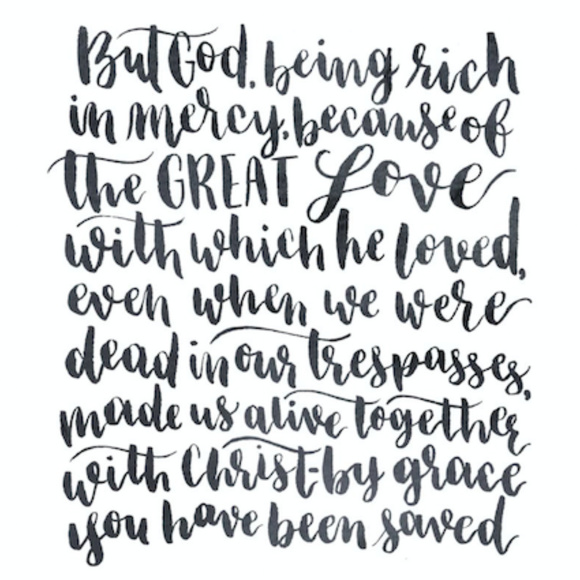 But God, being rich
in mercy, because of
the GREAT Love
with which he loved,
even when we were
dead in our trespasses,
made us alive together
with Christ-by grace
you have been saved